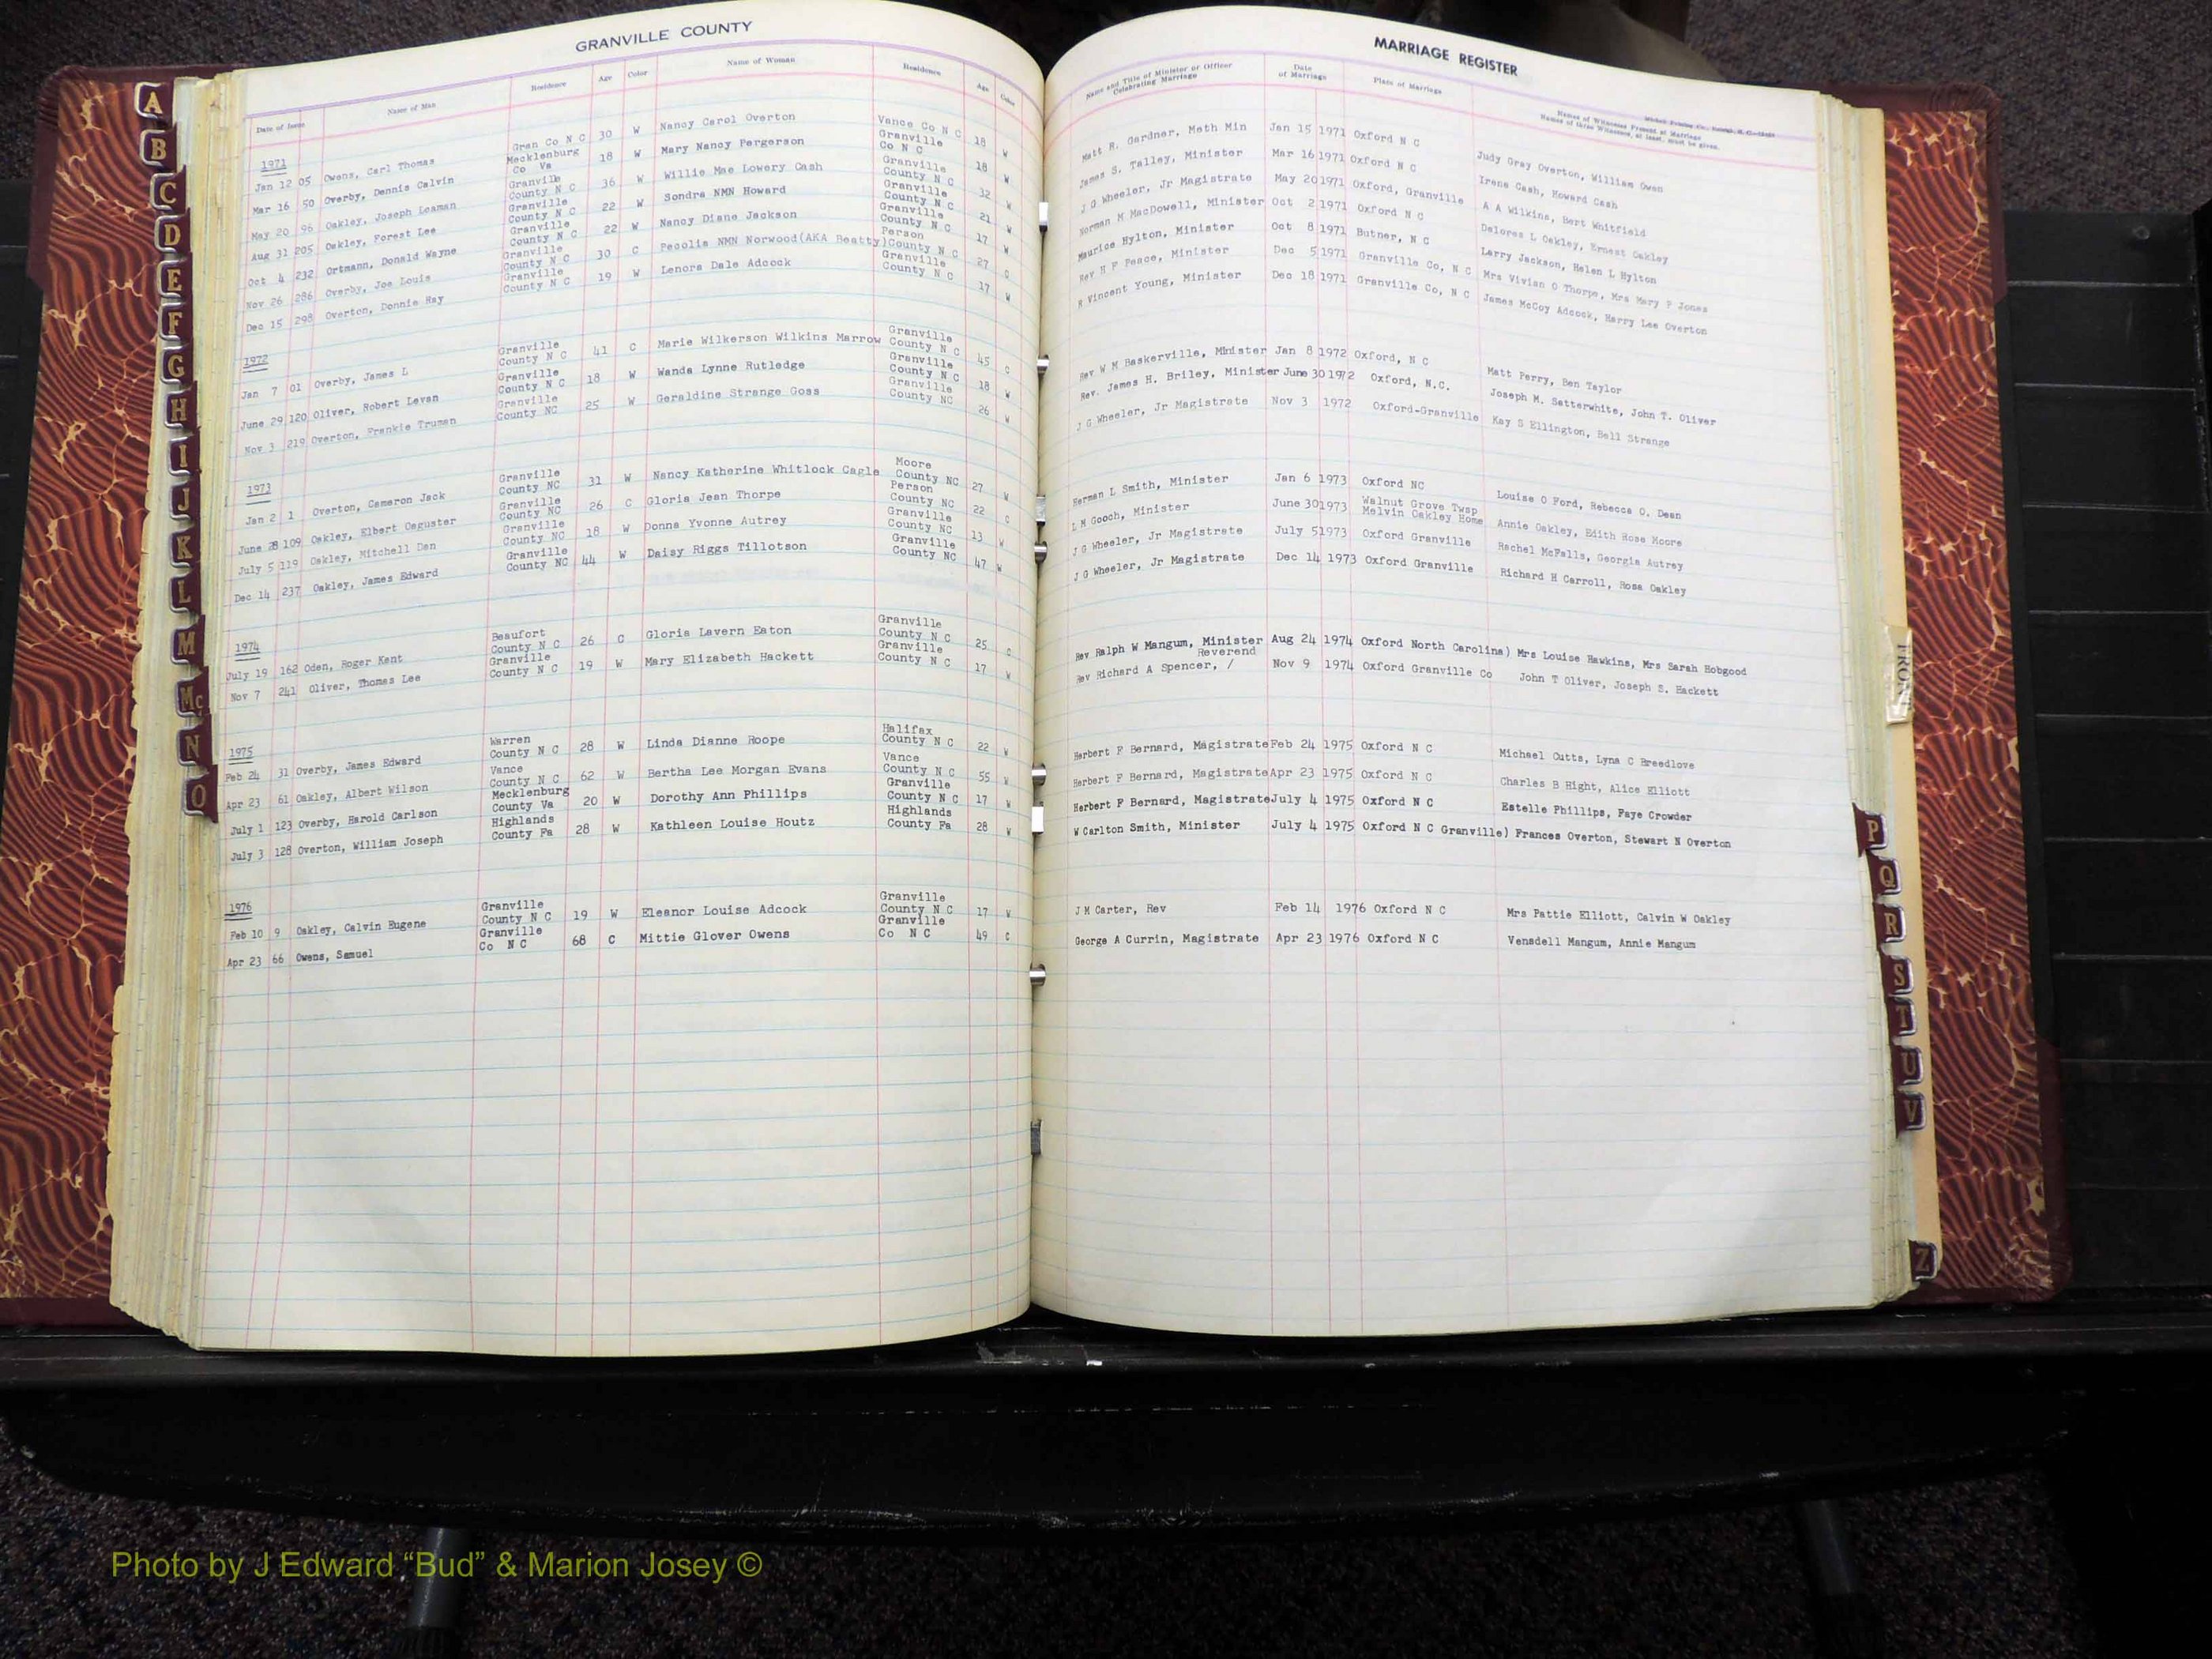 GRANVILLE COUNTY
Date of Issue Name of Man Residence Age Color Name of Woman Residence Age Color
1971
Jan 12 05 Owens, Carl Thomas Gran Co N C 30 W Nancy Carol Overton Vance Co N C 18 W
Mar 16 50 Overby, Dennis Calvin Mecklenburg Co Va 18 W Mary Nancy Pergerson Granville Co N C 18 W
May 20 96 Oakley, Joseph Leaman Granville County N C 36 W Willie Mae Lowery Cash Granville County N C 32 W
Aug 31 205 Oakley, Forest Lee Granville County N C 22 W Sondra NMN Howard Granville County N C 21 W
Oct 4 232 Ortmann, Donald Wayne Granville County N C 22 W Nancy Diane Jackson Granville County N C 17 W
Nov 26 286 Overby, Joe Louis Granville County N C 30 C Pecolia NMN Norwood(AKA Beatty) Person County N C 27 C
Dec 15 298 Overton, Donnie Ray Granville County N C 19 W Lenora Dale Adcock Granville County N C 17 W
1972
Jan 7 01 Overby, James L Granville County N C 41 C Marie Wilkerson Wilkins Marrow Granville County N C 45 C
June 29 120 Oliver, Robert Levan Granville County N C 18 W Wanda Lynne Rutledge Granville County N C 18 W
Nov 3 219 Overton, Frankie Truman Granville County NC 25 W Geraldine Strange Goss Granville County NC 26 W
1973
Jan 2 1 Overton, Cameron Jack Granville County NC 31 W Nancy Katherine Whitlock Cagle Moore County NC 27 W
June 28 109 Oakley, Elbert Osguster Granville County NC 26 C Gloria Jean Thorpe Person County NC 22 C
July 5 119 Oakley, Mitchell Dan Granville County NC 18 W Donna Yvonne Autrey Granville County NC 13 W
Dec 14 237 Oakley, James Edward Granville County NC 44 W Daisy Riggs Tillotson Granville County NC 47 W
1974
July 19 162 Oden, Roger Kent Beaufort County N C 26 C Gloria Lavern Eaton Granville County N C 25 C
Nov 7 241 Oliver, Thomas Lee Granville County N C 19 W Mary Elizabeth Hackett Granville County N C 17 W
1975
Feb 24 31 Overby, James Edward Warren County N C 28 W Linda Dianne Roope Halifax County N C 22 W
Apr 23 61 Oakley, Albert Wilson Vance County N C 62 W Bertha Lee Morgan Evans Vance County N C 55 W
July 1 123 Overby, Harold Carlson Mecklenburg County Va 20 W Dorothy Ann Phillips Granville County N C 17 W
July 3 128 Overton, William Joseph Highlands County Fa 28 W Kathleen Louise Houtz Highlands County Fa 28 W
1976
Feb 10 9 Oakley, Calvin Eugene Granville County N C 19 W Eleanor Louise Adcock Granville County N C 17 W
Apr 23 66 Owens, Samuel Granville Co N C 68 C Mittie Glover Owens Granville Co N C 49 C
MARRIAGE REGISTER
Name and Title of Minister or Officer Celebrating Marriage Date of Marriage Place of Marriage Names of Witnesses Present at Marriage Names of three Witnesses, at least, must be given.
Matt R. Gardner, Meth Min Jan 15 1971 Oxford N C Judy Gray Overton, William Owen
James S. Talley, Minister Mar 16 1971 Oxford N C Irene Cash, Howard Cash
J G Wheeler, Jr Magistrate May 20 1971 Oxford, Granville A A Wilkins, Bert Whitfield
Norman M MacDowell, Minister Oct 2 1971 Oxford N C Delores L Oakley, Ernest Oakley
Maurice Hylton, Minister Oct 8 1971 Butner, N C Larry Jackson, Helen L Hylton
Rev H F Peace, Minister Dec 5 1971 Granville Co, N C Mrs Vivian O Thorpe, Mrs Mary P Jones
R Vincent Young, Minister Dec 18 1971 Granville Co, N C James McCoy Adcock, Harry Lee Overton
Rev W M Baskerville, Minister Jan 8 1972 Oxford, N C Matt Perry, Ben Taylor
Rev. James H. Briley, Minister June 30 1972 Oxford, N.C. Joseph M. Satterwhite, John T. Oliver
J G Wheeler, Jr Magistrate Nov 3 1972 Oxford-Granville Kay S Ellington, Bell Strange
Herman L Smith, Minister Jan 6 1973 Oxford NC Louise O Ford, Rebecca O. Dean
L M Gooch, Minister June 30 1973 Walnut Grove Twsp Melvin Oakley Home Annie Oakley, Edith Rose Moore
J G Wheeler, Jr Magistrate July 5 1973 Oxford Granville Rachel McFalls, Georgia Autrey
J G Wheeler, Jr Magistrate Dec 14 1973 Oxford Granville Richard H Carroll, Rosa Oakley
Rev Ralph W Mangum, Minister Aug 24 1974 Oxford North Carolina) Mrs Louise Hawkins, Mrs Sarah Hobgood
Rev Richard A Spencer, / Reverend Nov 9 1974 Oxford Granville Co John T Oliver, Joseph S. Hackett
Herbert F Bernard, Magistrate Feb 24 1975 Oxford N C Michael Cutts, Lyna C Breedlove
Herbert F Bernard, Magistrate Apr 23 1975 Oxford N C Charles B Hight, Alice Elliott
Herbert F Bernard, Magistrate July 4 1975 Oxford N C Estelle Phillips, Faye Crowder
W Carlton Smith, Minister July 4 1975 Oxford N C Granville) Frances Overton, Stewart N Overton
J M Carter, Rev Feb 14 1976 Oxford N C Mrs Pattie Elliott, Calvin W Oakley
George A Currin, Magistrate Apr 23 1976 Oxford N C Venadell Mangum, Annie Mangum
A
B
C
D
E
F
G
H
I
J
K
L
M
Mc
N
O
FRONT
P
Q
R
S
T
U
V
Z
Photo by J Edward “Bud” & Marion Josey ©